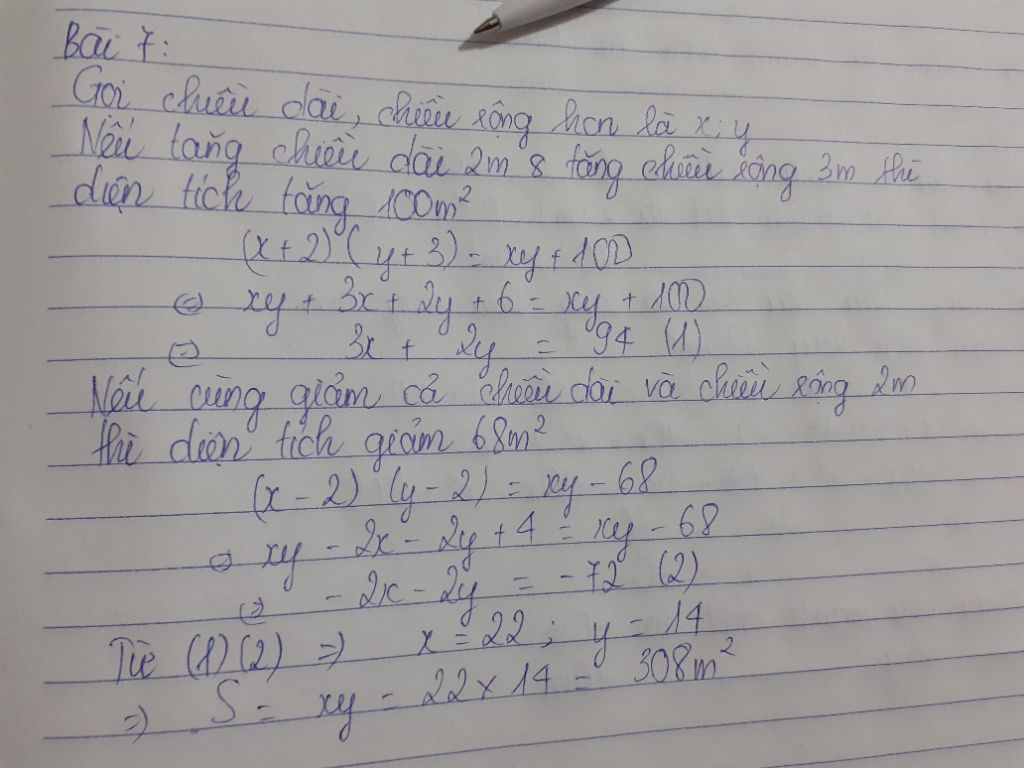 Bài 7:
Gọi chiều dài, chiều rộng hcn là x; y
Nếu tăng chiều dài 2m & tăng chiều rộng 3m thì
diện tích tăng 100m²
(x+2)(y+3) = xy + 100
⇔ xy + 3x + 2y + 6 = xy + 100
⇔ 3x + 2y = 94 (1)
Nếu cùng giảm cả chiều dài và chiều rộng 2m
thì diện tích giảm 68m²
(x - 2) (y - 2) = xy - 68
⇔ xy - 2x - 2y + 4 = xy - 68
⇔ - 2x - 2y = -72 (2)
Từ (1)(2) ⇒ x = 22 ; y = 14
⇒ S = xy = 22 x 14 = 308m²